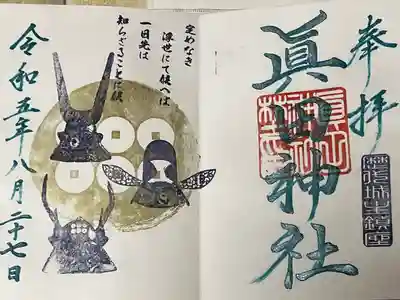 奉拝
眞田神社
眞田神社
定めなき
浮世にて候へは
一日先は
知らざることに候
令和五年八月二十七日